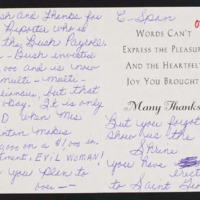 sh and Thanks for
Reporter who is
the Bush Payroll.
- Bush invents
000 and is now
multi - multi -
, but that
okay. It is only
D when Mrs
makes
000 on a $1,000 in-
ment, EVIL WOMAN!
you plan to
ows —
C-Span
WORDS CAN'T
EXPRESS THE PLEASURE
AND THE HEARTFELT
JOY YOU BROUGHT
Many Thanks
But you forgot
Show us the
Shrine
you have
erected
to Saint